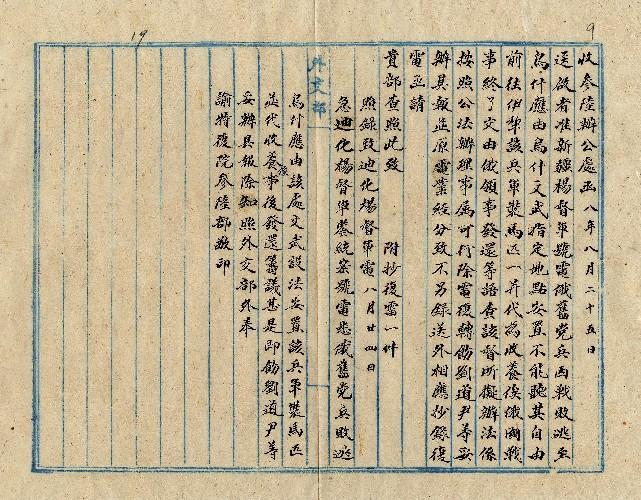 收參陸辦公處函八年八月二十五日
送啟者准新疆楊督軍號電俄舊党兵因戰敗逃至
烏什應由烏什文武指定地點安置不能聽其自由
前往伊犁該兵軍裝馬匹一并代為收養俟俄国戰
事終了交由俄領事發還等語查該督所擬辦法係
按照公法辦理事属可行除電復轉飭劉道尹等妥
辦具報並原電業經分致不另録送外相應抄録復
電函請
貴部查照此致 附抄復電一件
照録致迪化楊督軍電八月廿四日
急迪化楊督軍鑒統密號電悉俄舊党兵敗逃
烏什應由該處文武設法安置該兵軍裝馬匹
並代收養事後發還籌議甚是即飭劉道尹等
妥辦具報除知照外交部外奉
諭特復院參陸部敬印
外交部
9
19